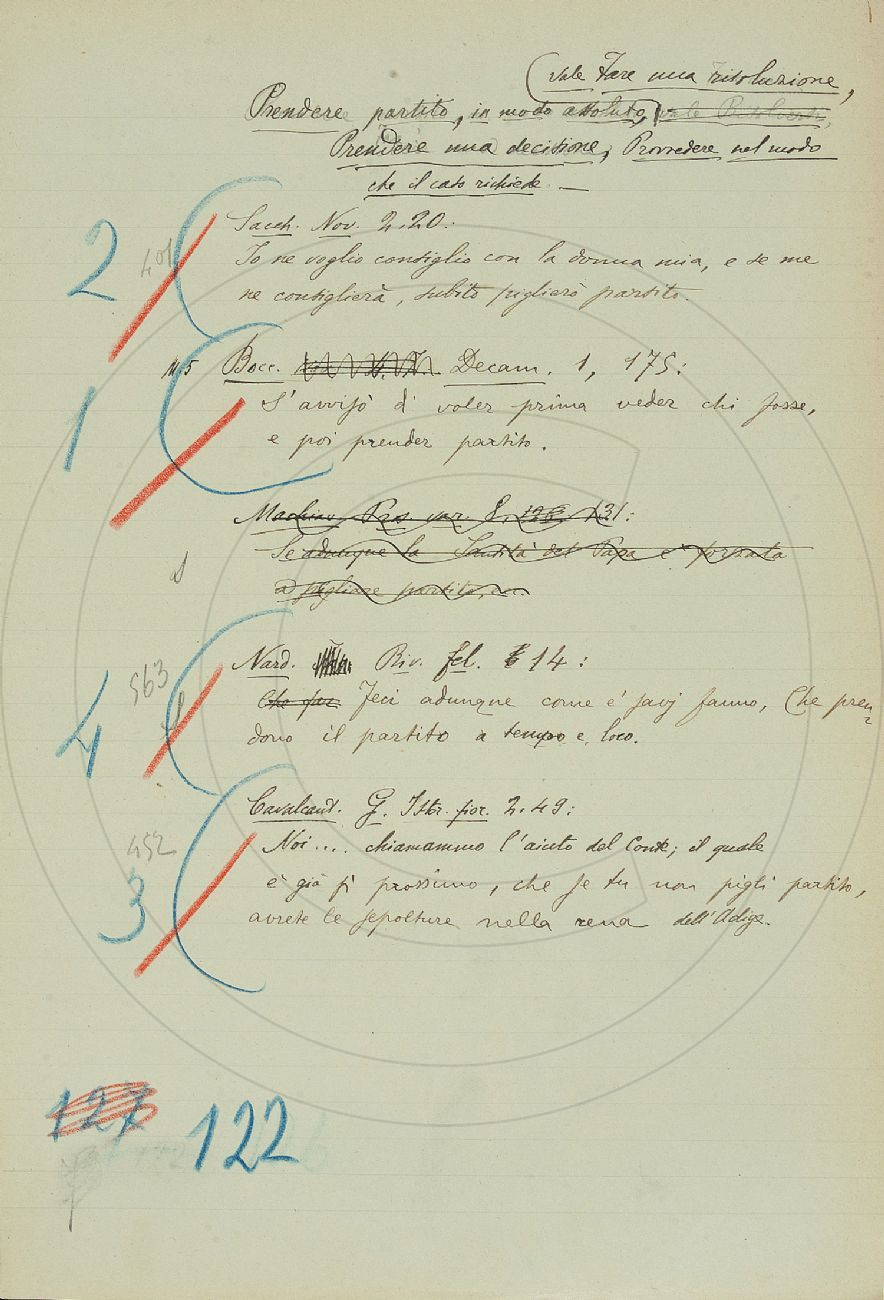 (vale Fare una risoluzione,
Prendere partito, in modo assoluto, vale Risolversi,
Prendere una decisione, Provvedere nel modo
che il caso richiede. —
2 401 Sacch. Nov. 2.20:
Io ne voglio consiglio con la donna mia, e se me
ne consiglierà, subito piglierò partito.
1 Bocc. Decam. 1, 175:
S'avvisò di voler prima veder chi fosse,
e poi prender partito.
Machiav. Pros. var. 8. 126 131:
Se adunque la Santità del Papa è forzata
a pigliare partito, ec.
4 563 Nard. Riv. fel. 14:
Che far. Feci adunque come e' savj fanno, Che pren-
dono il partito a tempo e loco.
3 452 Cavalcant. G. Istor. fior. 2.49:
Noi.... chiamammo l'aiuto del Conte; il quale
è già sì prossimo, che se tu non pigli partito,
avrete le sepolture nella rena dell'Adige.
127 122